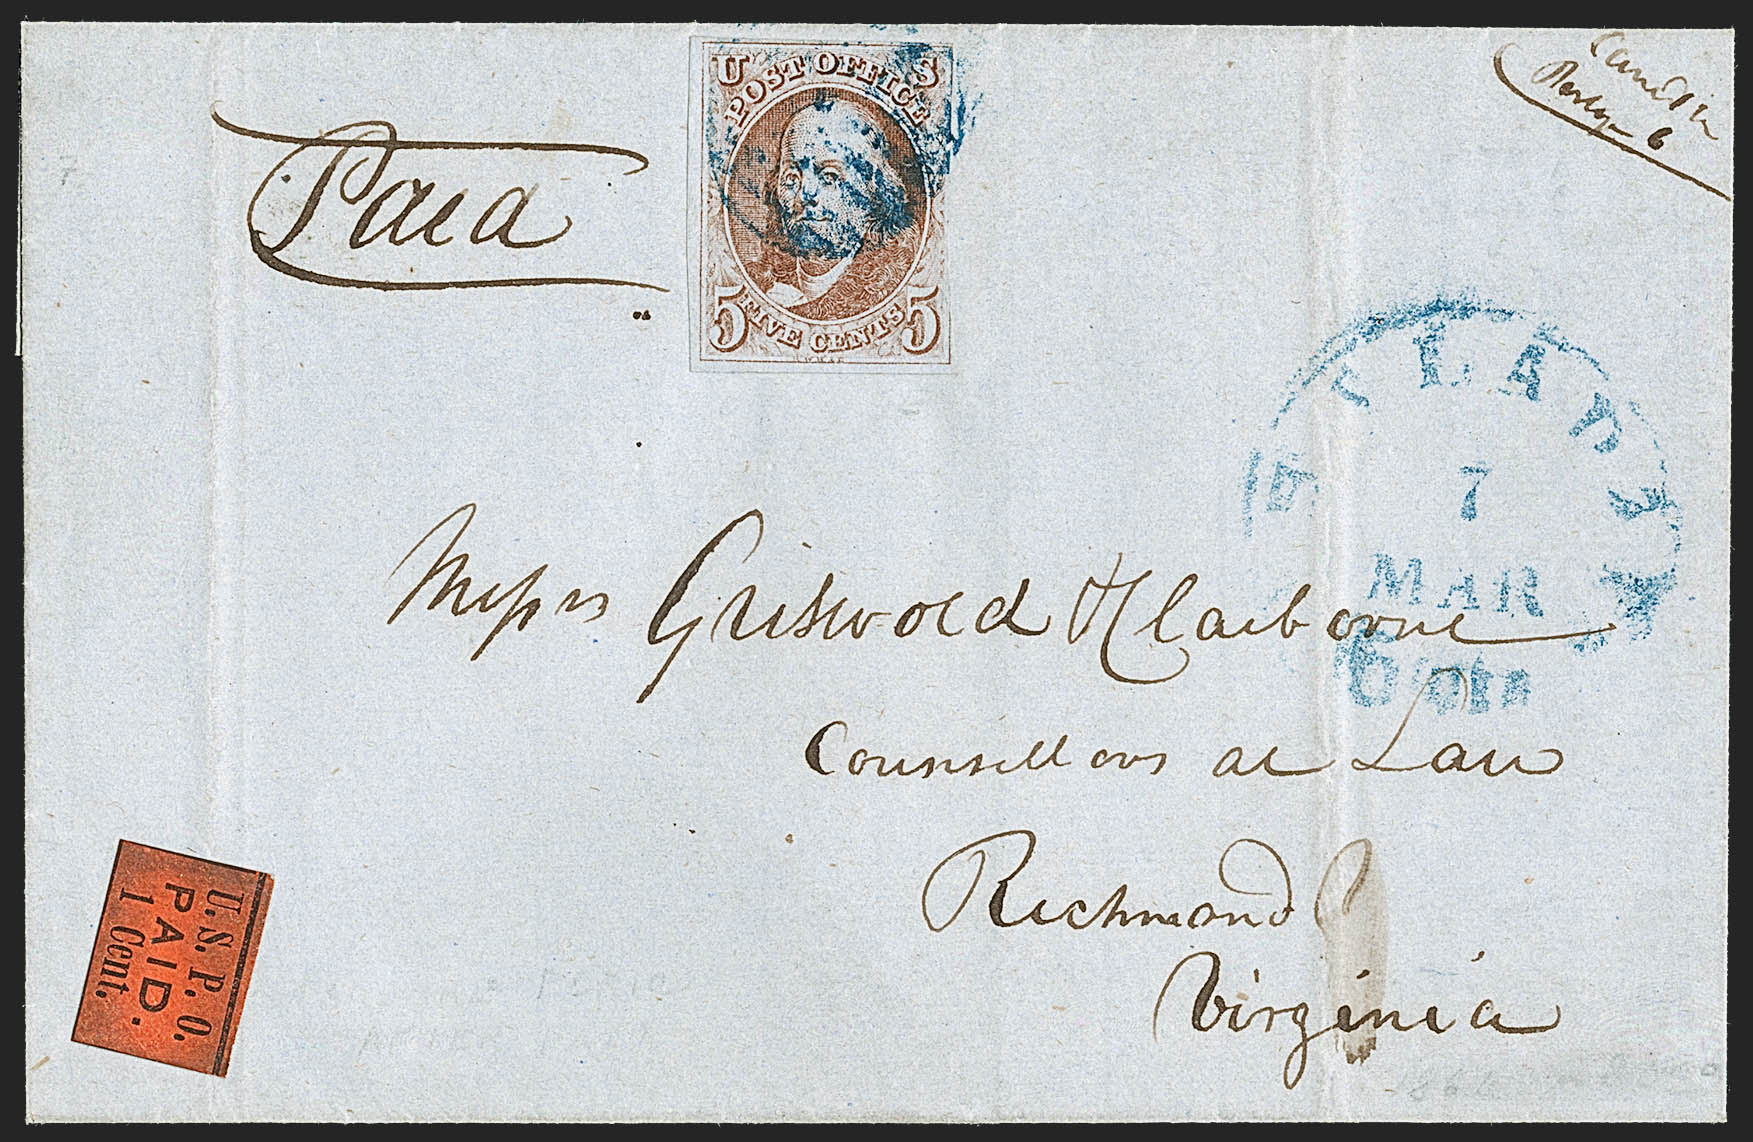 U S
POST OFFICE
5 FIVE CENTS 5
Paid
6
7
MAR
5 cts
Messrs Griswold & Claiborne
Counsellors at Law
Richmond
Virginia
U.S.P.O.
PAID.
1 Cent.